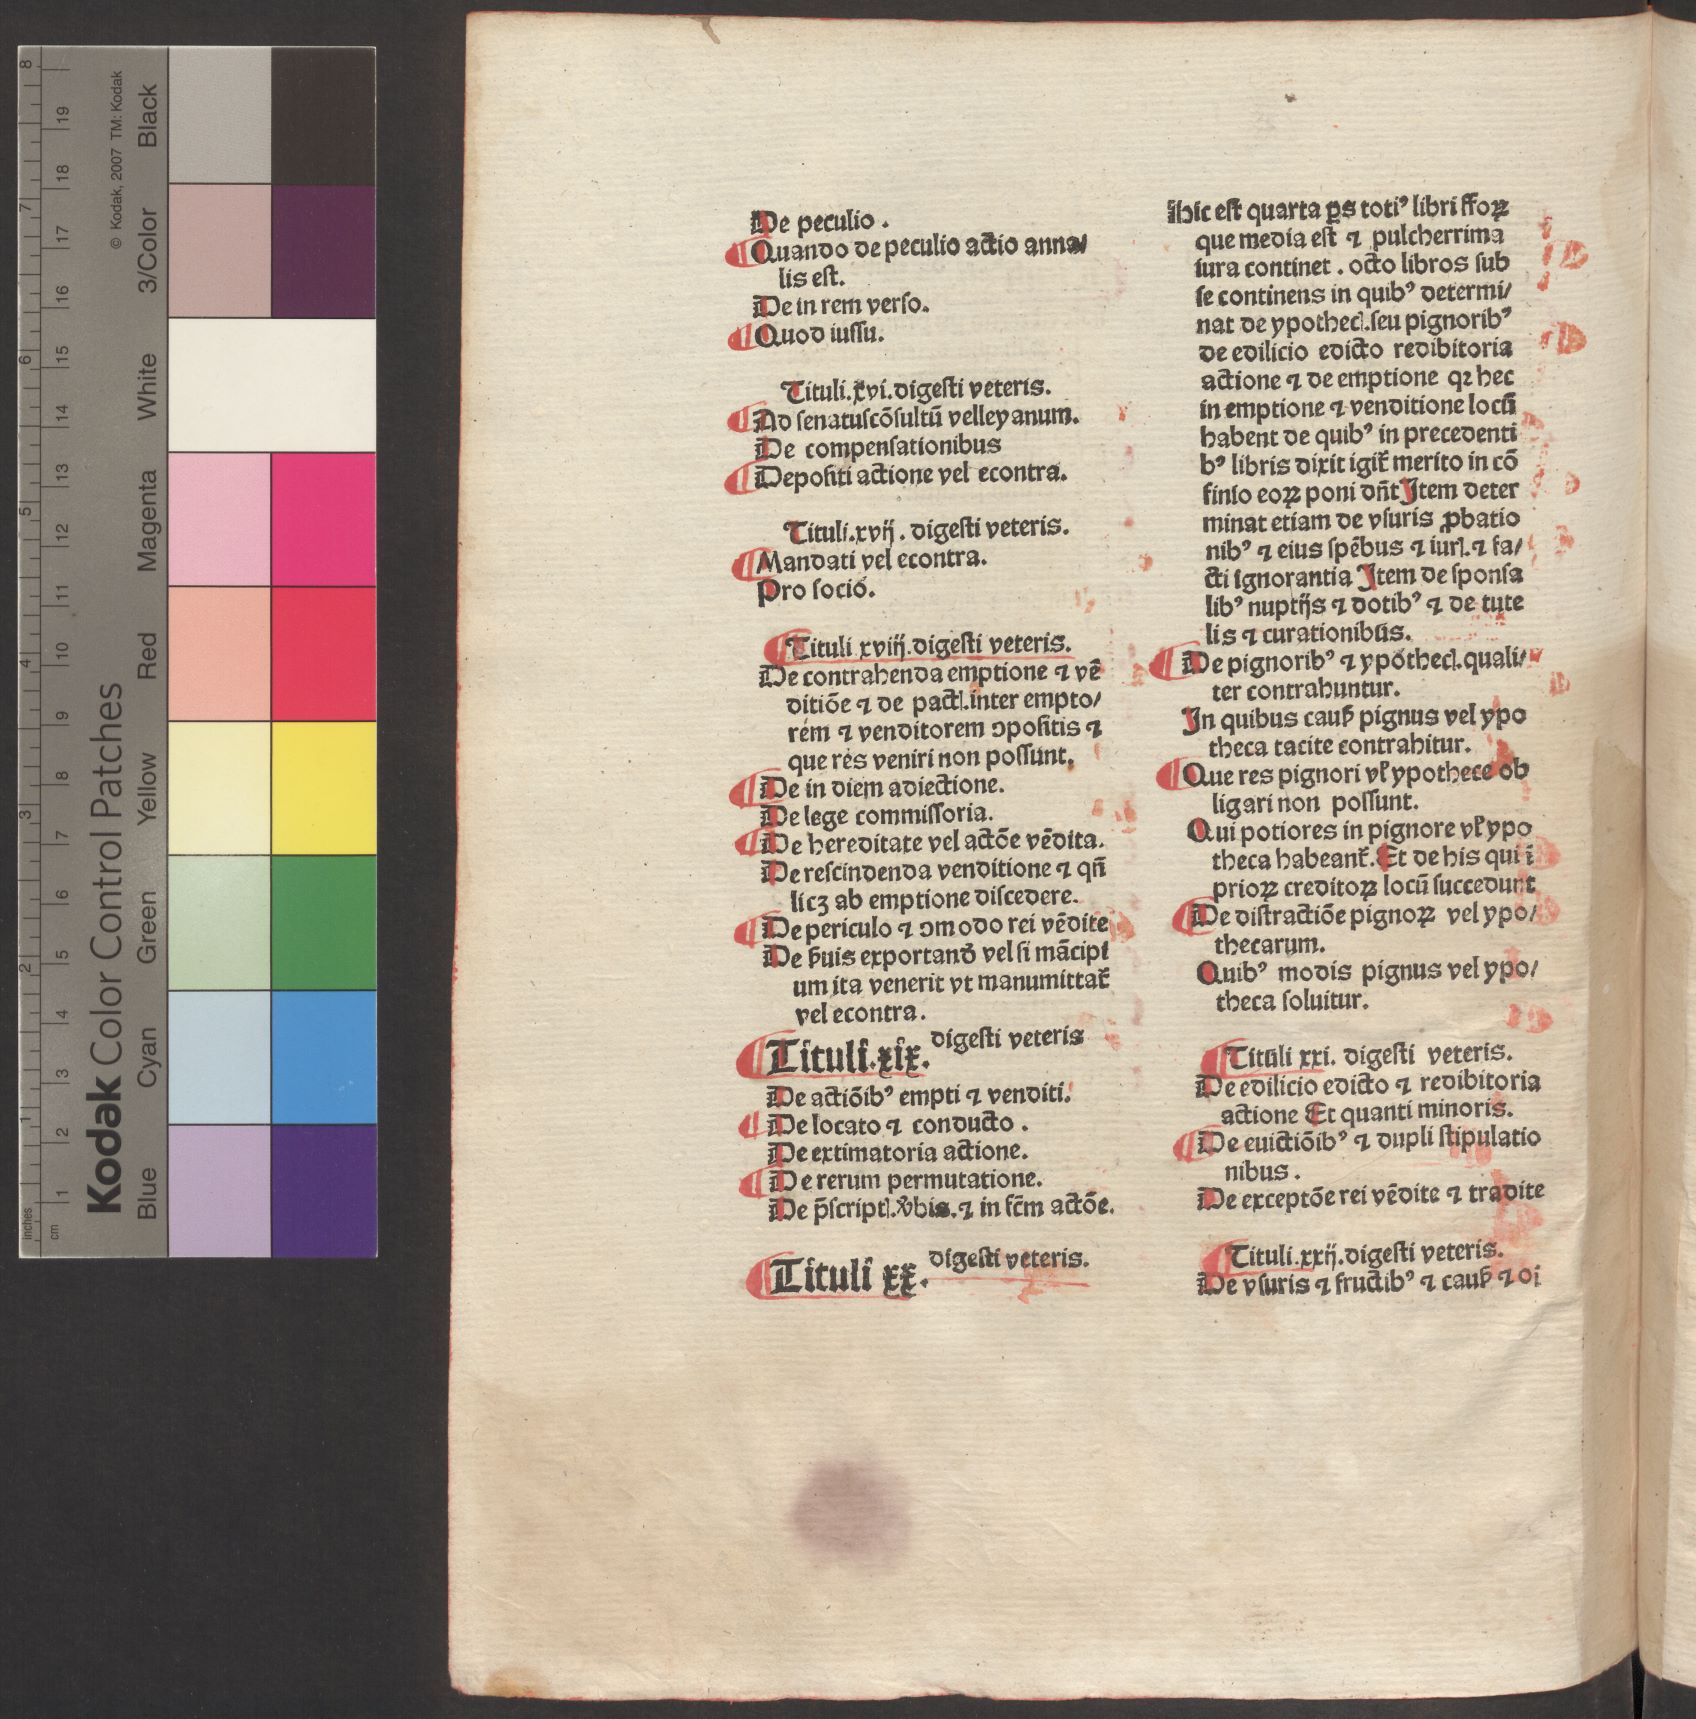 De peculio.
Quando de peculio actio anna/
lis est.
De in rem verso.
Quod iussu.
Tituli.xvi.digesti veteris.
Ad senatuscõsultũ velleyanum.
De compensationibus
Depositi actione vel econtra.
Tituli.xvij. digesti veteris.
Mandati vel econtra.
Pro socio.
Tituli xviij.digesti veteris.
De contrahenda emptione ⁊ vẽ
ditiõe ⁊ de pactꝭ.inter empto/
rem ⁊ venditorem ꝯpositis ⁊
que res veniri non possunt.
De in diem adiectione.
De lege commissoria.
De hereditate vel actõe vẽdita.
De rescindenda venditione ⁊ qñ
licꝫ ab emptione discedere.
De periculo ⁊ ꝯmodo rei vẽdite
De ẜuis exportanď vel si mãcipi
um ita venerit vt manumittat᷑
vel econtra.
Tituli.xix. digesti veteris
De actiõibꝰ empti ⁊ venditi.
De locato ⁊ conducto.
De extimatoria actione.
De rerum permutatione.
De p̃scriptꝭ.v̾bis.⁊ in fc̃m actõe.
Tituli xx. digesti veteris.
Hic est quarta ꝑs totiꝰ libri ffoꝝ
que media est ⁊ pulcherrima
iura continet. octo libros sub
se continens in quibꝰ determi/
nat de ypothecꝭ.seu pignoribꝰ
de edilicio edicto redibitoria
actione ⁊ de emptione qꝛ hec
in emptione ⁊ venditione locũ
habent de quibꝰ in precedenti
bꝰ libris dixit igit᷑ merito in cõ
finio eoꝝ poni dñt Item deter
minat etiam de vsuris ꝓbatio
nibꝰ ⁊ eius spẽbus ⁊ iurꝭ.⁊ fa/
cti ignorantia Item de sponsa
libꝰ nuptijs ⁊ dotibꝰ ⁊ de tute
lis ⁊ curationibus.
De pignoribꝰ ⁊ ypothecꝭ.quali/
ter contrahuntur.
In quibus cauẜ pignus vel ypo
theca tacite contrahitur.
Que res pignori vꝉ ypothece ob
ligari non possunt.
Qui potiores in pignore vꝉ ypo
theca habeant᷑. Et de his qui ĩ
prioꝝ creditoꝝ locũ succedunt
De distractiõe pignoꝝ vel ypo/
thecarum.
Quibꝰ modis pignus vel ypo/
theca soluitur.
Tituli xxi. digesti veteris.
De edilicio edicto ⁊ redibitoria
actione Et quanti minoris.
De euictiõibꝰ ⁊ dupli stipulatio
nibus.
De exceptõe rei vẽdite ⁊ tradite
Tituli.xxij.digesti veteris.
De vsuris ⁊ fructibꝰ ⁊ cauẜ ⁊ oi
Kodak Color Control Patches
© Kodak, 2007 TM: Kodak
Blue Cyan Green Yellow Red Magenta White 3/Color Black
inches 1 2 3 4 5 6 7 8
cm 1 2 3 4 5 6 7 8 9 10 11 12 13 14 15 16 17 18 19